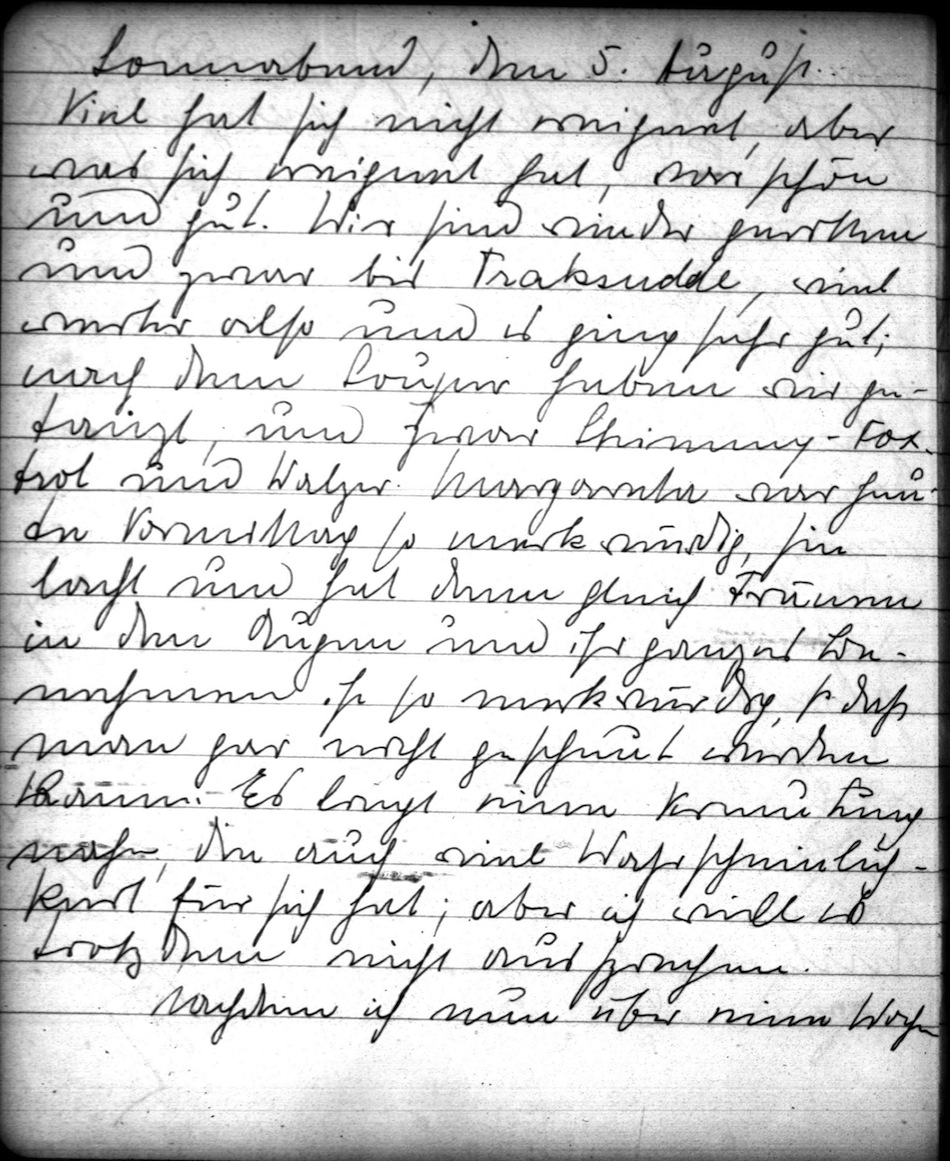 Sonnabend, den 5. August.
Viel hat sich nicht ereignet, aber
was sich ereignet hat, war schön
und gut. Wir sind wieder geritten
und zwar bis Traksedde, viel
weiter also und es ging sehr gut;
nach dem Souper haben wir ge-
tanzt, und zwar Shimmy-Fox-
trot und Walzer. Margarete war heu-
te Vormittag so merkwürdig, sie
lacht und hat dann gleich Tränen
in den Augen und ihr ganzes Be-
nehmen ist so merkwürdig, daß
man gar nicht gescheut werden
kann. Es liegt eine Vermutung
nahe, die auch viel Wahrscheinlich-
keit für sich hat; aber ich will es
trotzdem nicht aussprechen.
Nachdem ich nun über eine Woche